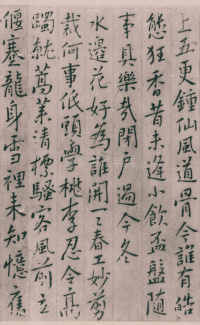 上五更鐘仙風道骨今誰有皓
態狂香昔未逢小飲盃盤隨
事具樂哉閉戶過今冬
水邊花好為誰開一一春工妙剪
裁何事低頭學桃李忍令高
躅就蒿萊清標騷客風前立
偃蹇龍身雪裡未知憶舊